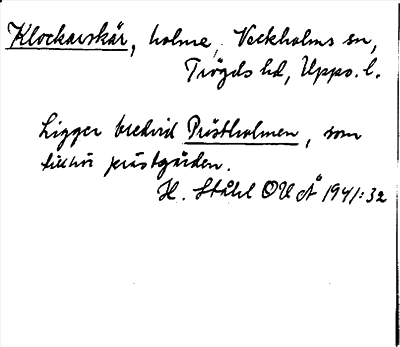 Klockarskär, holme, Veckholms sn,
Trögds hd, Upps. l.
Ligger bredvid Prästholmen, som
tillhör prästgården.
H. Ståhl OUÅ 1941:32